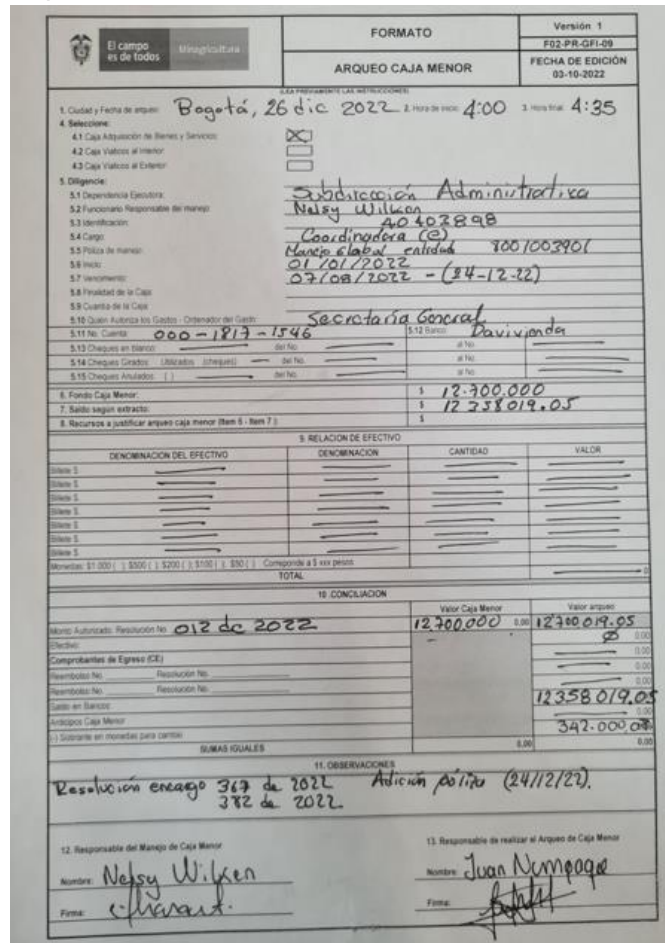 El campo es de todos Minagricultura
FORMATO
Versión 1
F02-PR-GFI-09
ARQUEO CAJA MENOR
FECHA DE EDICIÓN
03-10-2022
(LEA PREVIAMENTE LAS INSTRUCCIONES)
1. Ciudad y Fecha de arqueo: Bogotá, 26 dic 2022 2. Hora de inicio: 4:00 3. Hora final: 4:35
4. Seleccione:
4.1 Caja Adquisición de Bienes y Servicios:
4.2 Caja Viaticos al Interior:
4.3 Caja Viaticos al Exterior:
5. Diligencia:
5.1 Dependencia Ejecutora: Subdirección Administrativa
5.2 Funcionario Responsable del manejo: Nelsy Wilken
5.3 Identificación: 40403898
5.4 Cargo: Coordinadora (e)
5.5 Poliza de manejo: Manejo Global entidad 8001003901
5.6 Inicio: 01/01/2022
5.7 Vencimiento: 07/08/2022 - (24-12-22)
5.8 Finalidad de la Caja:
5.9 Cuantia de la Caja:
5.10 Quien Autoriza los Gastos - Ordenador del Gasto: Secretaría General
5.11 No. Cuenta: 000-1817-1546 5.12 Banco: Davivienda
5.13 Cheques en blanco: del No. al No.
5.14 Cheques Girados: (Utilizados (cheques) del No. al No.
5.15 Cheques Anulados: ( ) del No. al No.
6. Fondo Caja Menor: $ 12.700.000
7. Saldo según extracto: $ 12 358019.05
8. Recursos a justificar arqueo caja menor (Item 6 - Item 7): $
9. RELACION DE EFECTIVO
DENOMINACIÓN DEL EFECTIVO DENOMINACION CANTIDAD VALOR
Billete $
Billete $
Billete $
Billete $
Billete $
Billete $
Billete $
Monedas: $1.000 ( ); $500 ( ); $200 ( ); $100 ( ); $50 ( ) Corresponde a $ xxx pesos
TOTAL 0
10. CONCILIACION
Valor Caja Menor Valor arqueo
Monto Autorizado: Resolución No. 012 de 2022 12,700,000 0,00 12'700 019.05
Efectivo: - Ø 0,00
Comprobantes de Egreso (CE) 0,00
Reembolso No. Resolución No. 0,00
Reembolso No. Resolución No. 0,00
Saldo en Bancos 12358 019.05
Anticipos Caja Menor 0,00
(-) Sobrante en monedas para cambio 342.000,00
SUMAS IGUALES 0,00 0,00
11. OBSERVACIONES
Resolución encargo 367 de 2022 Adición póliza (24/12/22).
382 de 2022
12. Responsable del Manejo de Caja Menor
13. Responsable de realizar el Arqueo de Caja Menor
Nombre: Nelsy Wilken
Nombre: Juan Numpaque
Firma:
Firma: